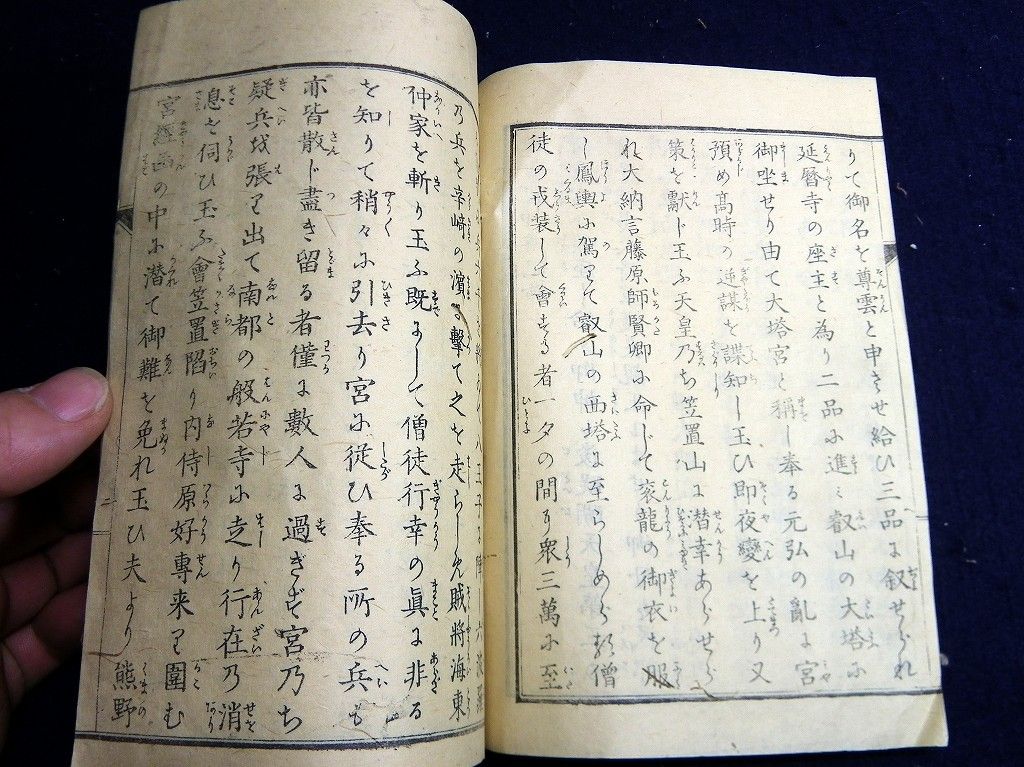 りて御名を尊雲と申させ給ひ三品に叙せられ
延暦寺の座主と為り二品に進み叡山の大塔に
御坐せり由て大塔宮と称し奉る元弘の亂に宮
預め高時の逆謀を諜知し玉ひ即夜變を上り又
策を獻じ玉ふ天皇乃ち笠置山に潜幸あらせら
れ大納言藤原師賢卿に命じて袞龍の御衣を服
し鳳輿に駕して叡山の西塔に至らしめら
僧徒の戎装して會する者一夕の間に衆三萬に至
八王子に陣
乃兵を辛崎の濱に撃て之を走らしめ賊將海東
仲家を斬り玉ふ既にして僧徒行幸の眞に非る
を知りて稍々に引去り宮に従ひ奉る所の兵も
亦皆散じ盡き留る者僅に數人に過ぎず宮乃ち
疑兵を張り出て南都の般若寺に走り行在乃消
息を伺ひ玉ふ會笠置陷り内侍原好專来り圍む
宮經函の中に潜て御難を免れ玉ひ夫より熊野